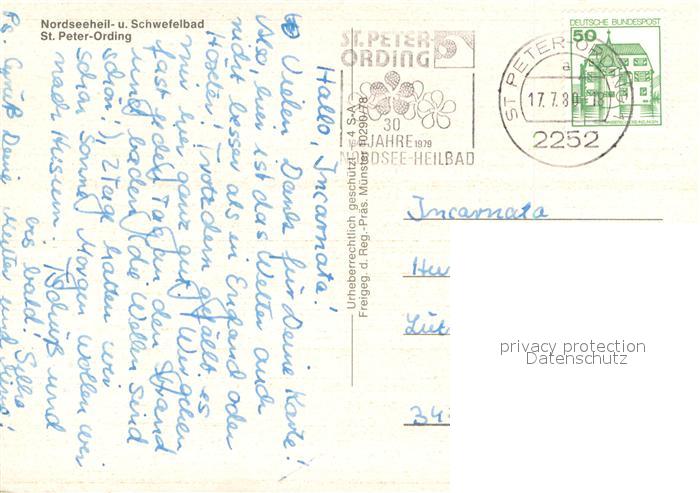 Nordseeheil- u. Schwefelbad
St. Peter-Ording
Hallo, Incarnata!
Vielen Dank für Deine Karte!
Also, hier ist das Wetter auch
nicht besser als in England oder
Höxter, Trotzdem gefällt es
mir hier ganz gut. Wir gehen
fast jeden Tag an den Strand
und baden (die Wellen sind
schön!), 2 Tage hatten wir
schon Sonne! Morgen wollen wir
nach Husum. Tschüß und
bis bald! Silke
Ps. Grüß Deine Mutter und
Urheberrechtlich geschützt
Freigeg. d. Reg.-Präs. Münster 10290/78
ST. PETER-
ORDING
30
JAHRE 1979
NORDSEE-HEILBAD
ST PETER-ORDING
a
17.7.80-18
2252
DEUTSCHE BUNDESPOST
50
Incarnata
34
privacy protection
Datenschutz